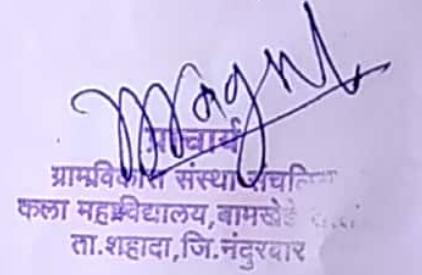 प्राचार्य
ग्रामविकास संस्था संचलित
कला महाविद्यालय, बामखेडे
ता.शहादा, जि.नंदुरबार